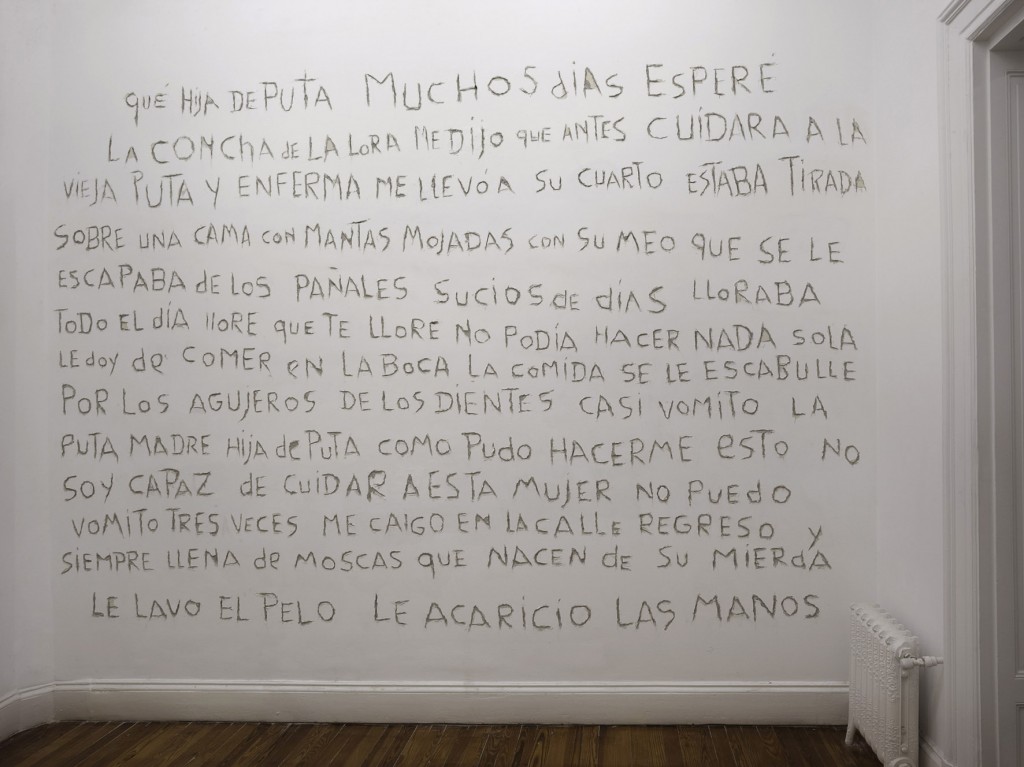 QUÉ HIJA DE PUTA MUCHOS DÍAS ESPERÉ
LA CONCHA de LA LORA ME DIJO QUE ANTES CUÍDARA A LA
VIEJA PUTA Y ENFERMA ME LLEVÓ A SU CUARTO ESTABA TIRADA
SOBRE UNA CAMA CON MANTAS MOJADAS CON SU MEO QUE SE LE
ESCAPABA de LOS PAÑALES SUCIOS de dÍAS LLORABA
TODO EL dÍA llORE que TE LLORE NO PODÍA HACER NADA SOLA
LE doy de COMER eN LA BOCA LA COMIDA SE LE ESCABULLE
POR LOS AGUJEROS DE LOS DIENTES CASI VOMITO LA
PUTA MADRE HIJA de PUTA COMO PUDO HACERME eSTO NO
SOY CAPAZ de CUIDAR A ESTA MUJER NO PUEdO
VOMITO TRES VECES ME CAIGO EN LA CALLE REGRESO y
SIEMPRE LLENA de MOSCAS QUE NACEN dE SU MIERdA
LE LAVO EL PELO LE ACARICIO LAS MANOS